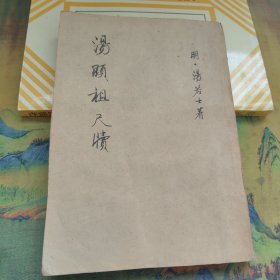 明·湯若士著
湯顯祖尺牘